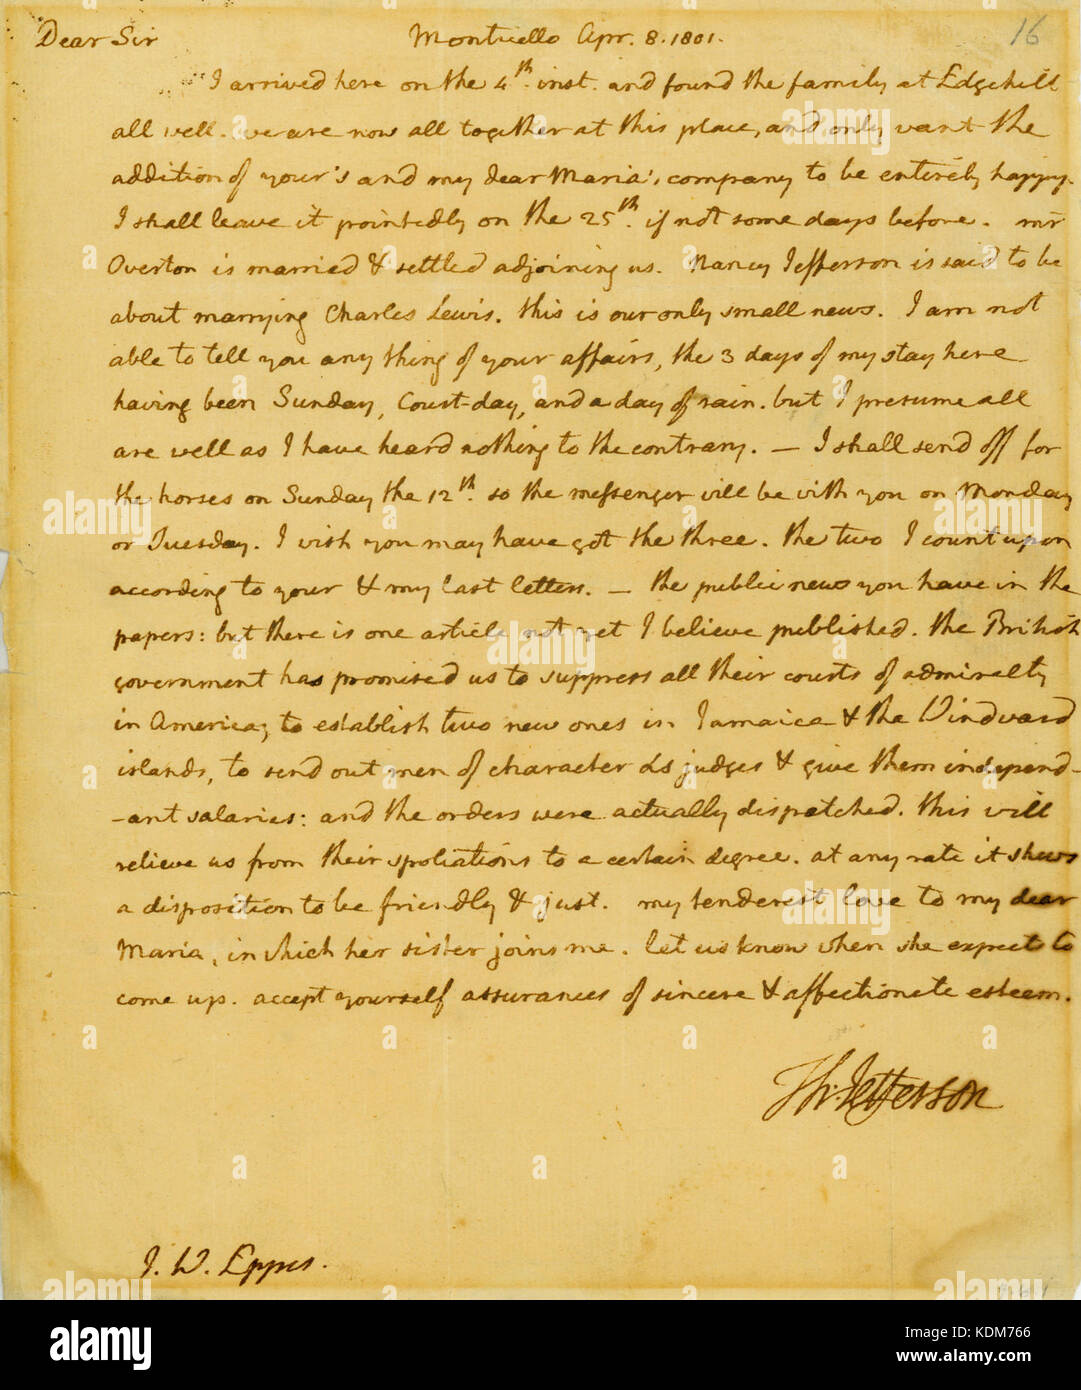 16
Dear Sir Monticello Apr. 8. 1801.
I arrived here on the 4th. inst. and found the family at Edgehill
all well. we are now all together at this place, and only want the
addition of your's and my dear Maria's company to be entirely happy.
I shall leave it pointedly on the 25th. if not some days before. mr
Overton is married & settled adjoining us. Nancy Jefferson is said to be
about marrying Charles Lewis. this is our only small news. I am not
able to tell you any thing of your affairs, the 3 days of my stay here
having been Sunday, Court-day, and a day of rain. but I presume all
are well as I have heard nothing to the contrary. — I shall send off for
the horses on Sunday the 12th. so the messenger will be with you on Monday
or Tuesday. I wish you may have got the three. the two I count upon
according to your & my last letters. — the public news you have in the
papers: but there is one article not yet I believe published. the British
government has promised us to suppress all their courts of admiralty
in America; to establish two new ones in Jamaica & the Windward
islands, to send out men of character as judges & give them independ-
-ant salaries: and the orders were actually dispatched. this will
relieve us from their spoliations to a certain degree. at any rate it shews
a disposition to be friendly & just. my tenderest love to my dear
Maria, in which her sister joins me. let us know when she expects to
come up. accept yourself assurances of sincere & affectionate esteem.
Th: Jefferson
J. W. Eppes.
alamy
Image ID: KDM766
www.alamy.com